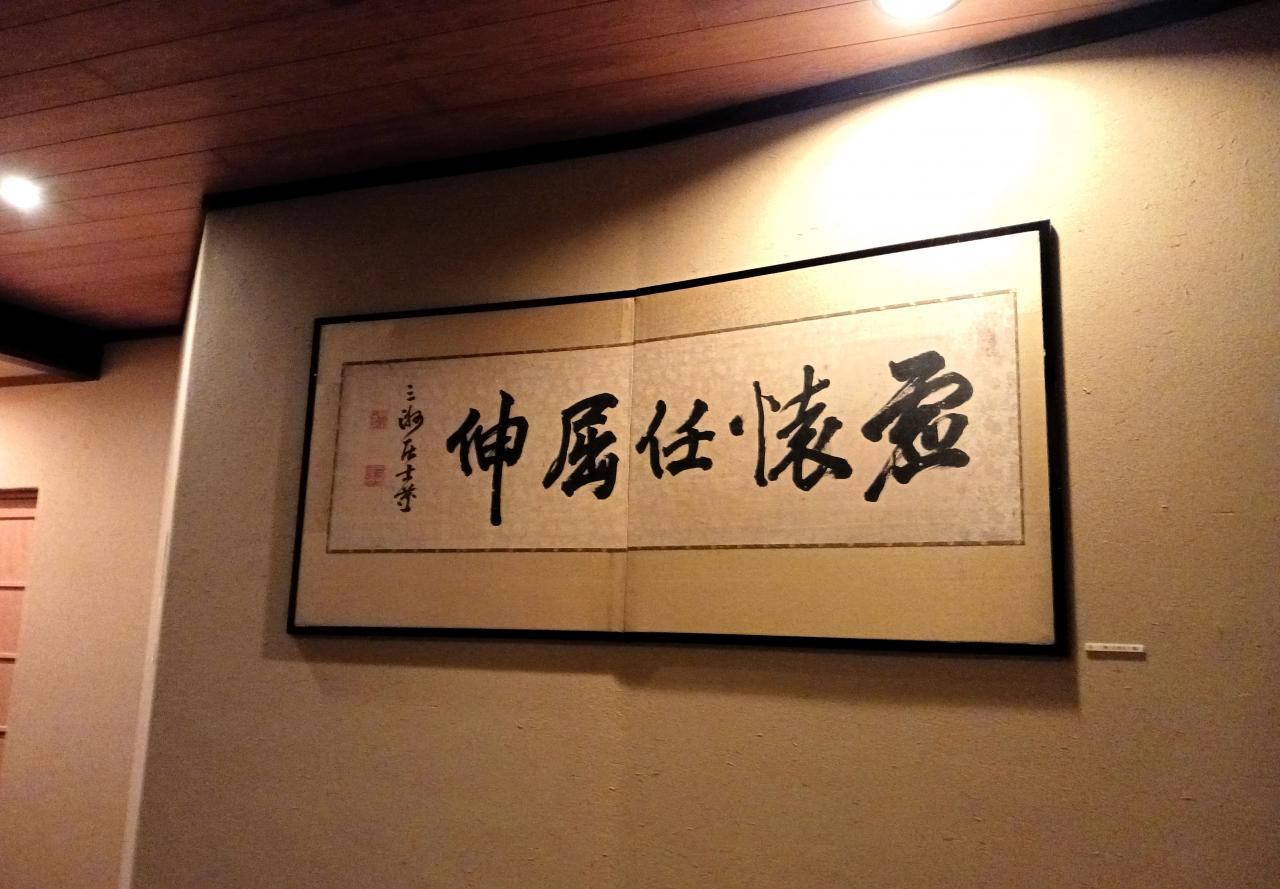 虚懐任屈伸
三洲居士葊